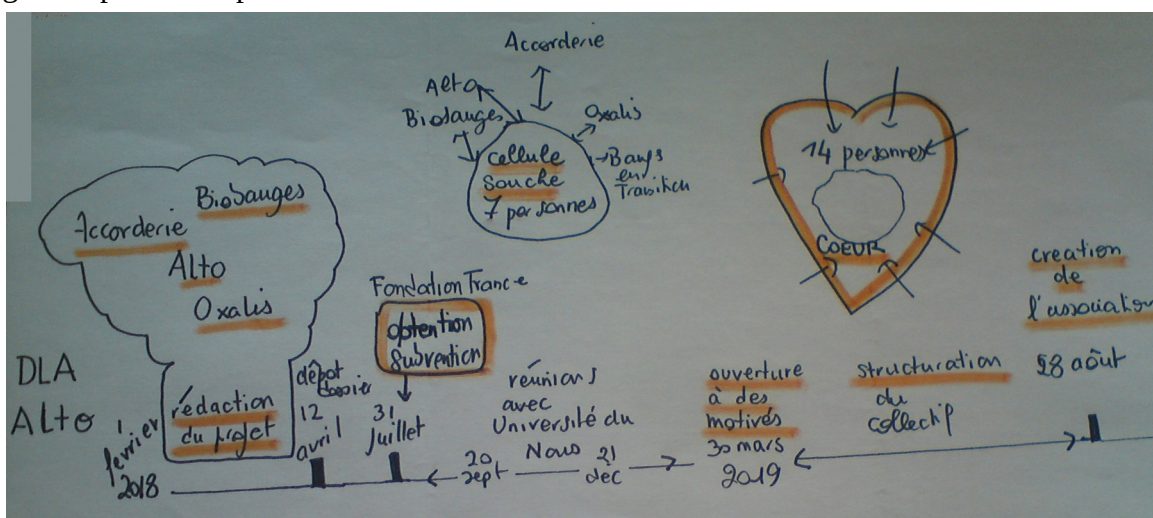 Accorderie
Alto
Biobauges
Oxalis
cellule
souche
7 personnes
Bauges
en
Transition
14 personnes
COEUR
Biobauges
Accorderie
Alto
Oxalis
rédaction
du projet
DLA
Alto
1
fevrier
2018
dépôt
dossier
12
avril
Fondation France
obtention
subvention
31
Juillet
réunions
avec
Université du
Nous
20
sept
21
dec
ouverture
à des
motivés
30 mars
2019
structuration
du
collectif
creation
de
l'association
28 août